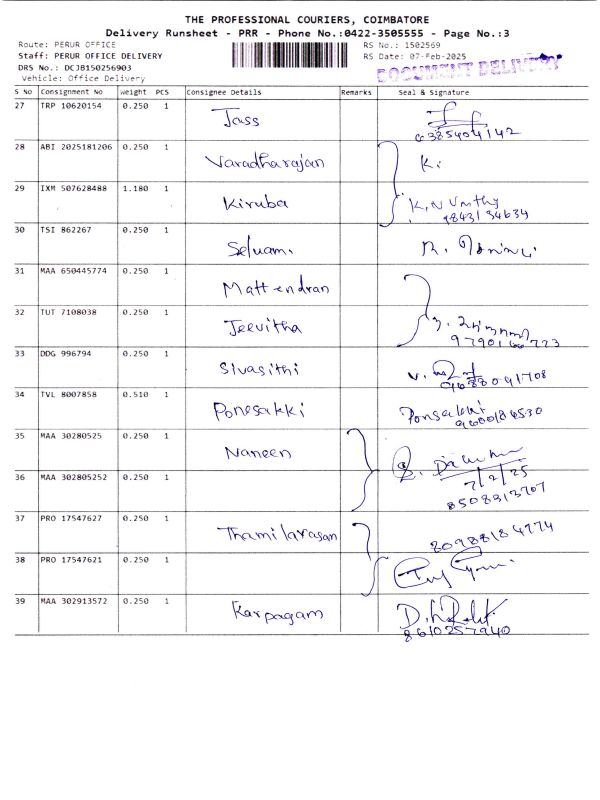 THE PROFESSIONAL COURIERS, COIMBATORE
Delivery Runsheet - PRR - Phone No.:0422-3505555 - Page No.:3
Route: PERUR OFFICE RS No.: 1502569
Staff: PERUR OFFICE DELIVERY RS Date: 07-Feb-2025
DRS No.: DCJB150256903 DOCUMENT DELIVERY
Vehicle: Office Delivery
S No Consignment No Weight PCS Consignee Details Remarks Seal & Signature
27 TRP 10620154 0.250 1 Jass
28 ABI 2025181206 0.250 1 Varadharajan K.
29 IXM 507628488 1.180 1 Kiruba
9843134634
30 TSI 862267 0.250 1 Selvam.
31 MAA 650445774 0.250 1 Mattendran
32 TUT 7108038 0.250 1 Jeevitha
33 DDG 996794 0.250 1 Sivasithi
34 TVL 8007858 0.510 1 Ponesakki Ponsakki
9600184530
35 MAA 30280525 0.250 1 Naneen
7/2/25
36 MAA 302805252 0.250 1
8508313707
37 PRO 17547627 0.250 1 Thamilarasan
38 PRO 17547621 0.250 1
39 MAA 302913572 0.250 1 Karpagam
8610257940